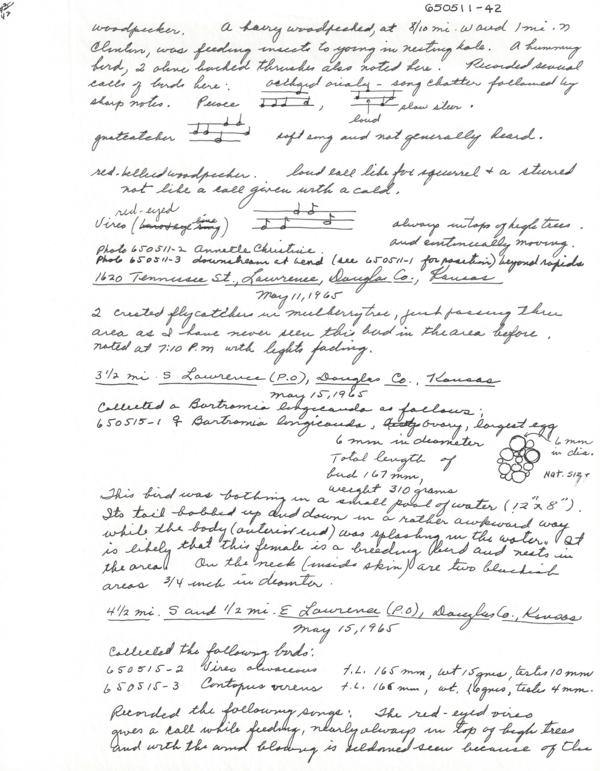 650511-42
woodpecker. A hairy woodpecked, at 8/10 mi. W and 1 mi. N
Clinton, was feeding insects to young in nesting hole. A humming
bird, 2 olive backed thrushes also noted here. Recorded several
calls of birds here: orchard oriole - song chatter followed by
sharp notes. Peewee , slow slur.
loud
gnatcatcher soft song and not generally heard.
red-bellied woodpecker. loud call like fox squirrel + a slurred
not like a call given with a cold.
red-eyed
Vireo ( line ) always in tops of high trees.
and continually moving.
Photo 650511-2 Annette Christine.
Photo 650511-3 downstream at bend (see 650511-1 for position) beyond rapids
1620 Tennessee St., Lawrence, Douglas Co., Kansas
May 11, 1965
2 crested flycatchers in mulberry tree, just passing thru
area as I have never seen this bird in the area before.
noted at 7:10 P.M with lights fading.
3 1/2 mi. S Lawrence (P.O), Douglas Co., Kansas
May 15, 1965
Collected a Bartromia longicauda as follows:
650515-1 ♀ Bartromia longicauda, ovary, largest egg
6 mm in diameter
Total length of
bird 167 mm,
weight 310 grams
6 mm
in dia.
Nat. size
This bird was bathing in a small pool of water (12" x 8").
Its tail bobbed up and down in a rather awkward way
while the body (anterior end) was splashing in the water. It
is likely that this female is a breeding bird and nests in
the area. On the neck (inside skin) are two blackish
areas 3/4 inch in diamter.
4 1/2 mi. S and 1/2 mi. E Lawrence (P.O), Douglas Co., Kansas
May 15, 1965
Collected the following birds:
650515-2 Vireo olivaceous t.L. 165 mm, wt 15 gms, testes 10 mm
650515-3 Contopus virens t.L. 168 mm, wt. 16 gms, teste 4 mm.
Recorded the following songs: The red-eyed vireo
gives a call while feeding, nearly always in top of high trees
and with the wind blowing is seldomed seen because of the